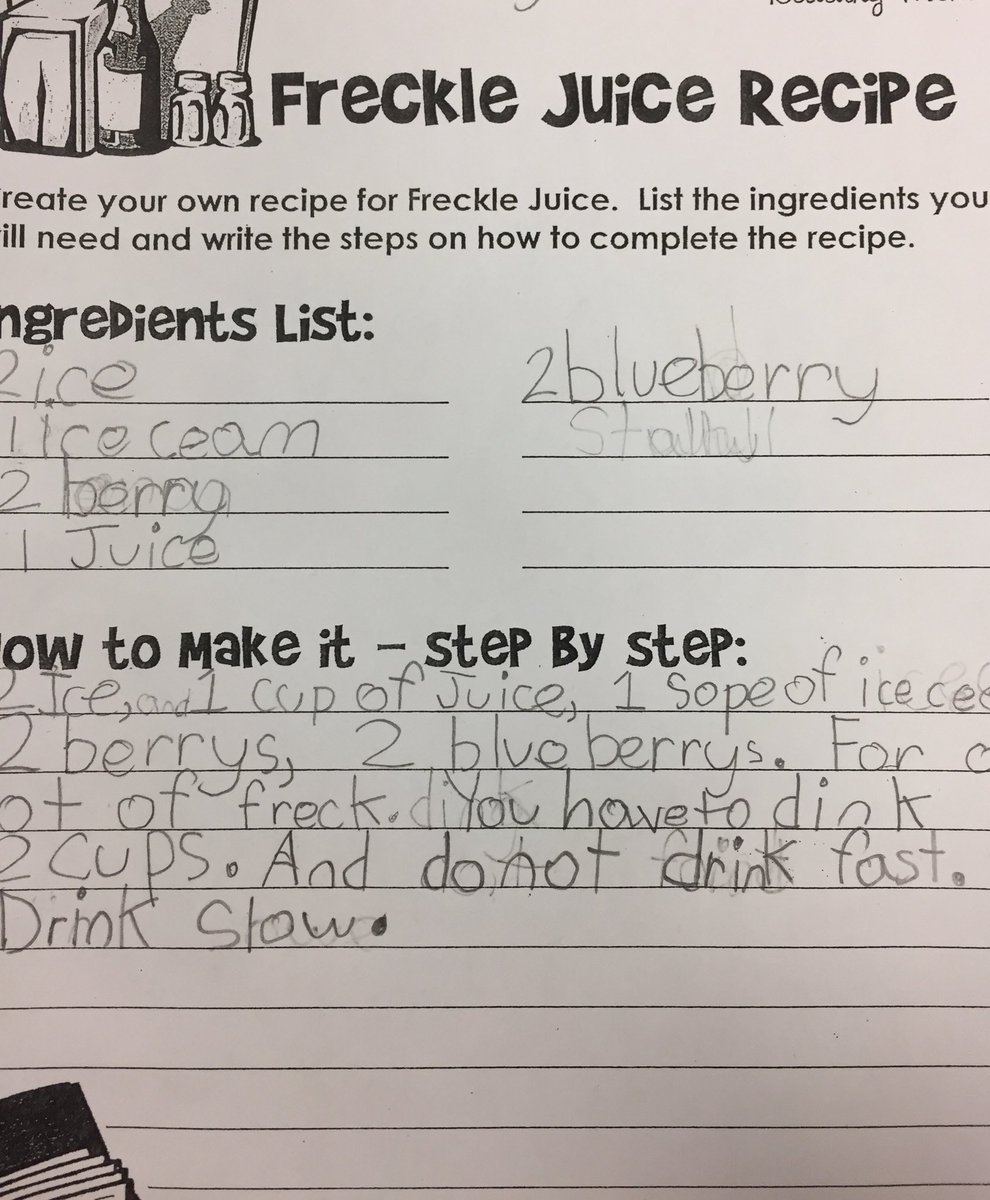 Freckle Juice Recipe
reate your own recipe for Freckle Juice. List the ingredients you
ill need and write the steps on how to complete the recipe.
ngredients List:
2 ice
2 blueberry
1 Ice ceam
2 berry
1 Juice
ow to Make it – Step By Step:
2 Ice, and 1 cup of Juice, 1 sope of ice cea
2 berrys, 2 blueberrys. For a
ot of freck. You have to dink
2 cups. And do not drink fast.
Drink Slow.